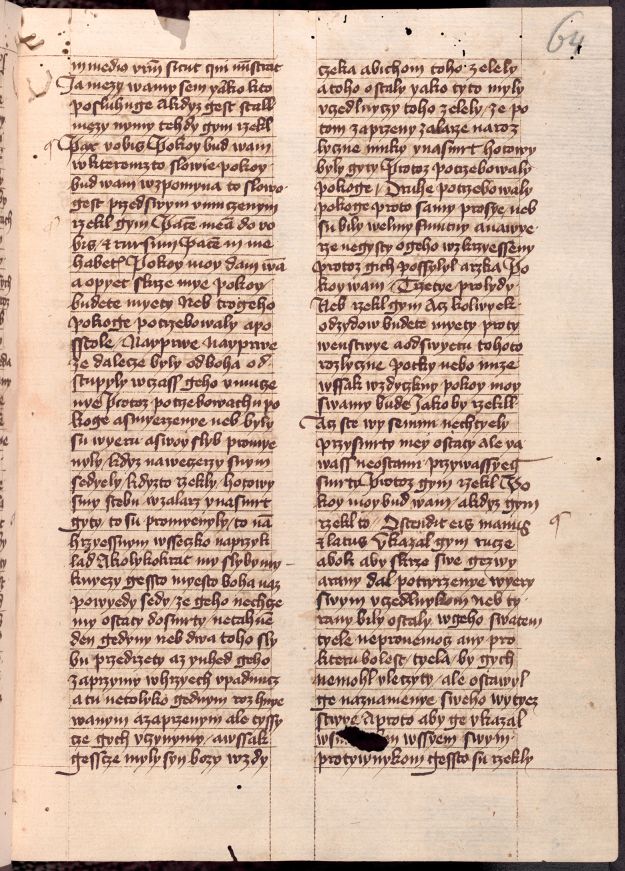 64
in medio vrm̄ sicut qui mīstrat
Ja mezy wamy sem yakо kto
posluhuge Akdyz gest stall
mezy nymy tehdy gym rzekl
Pax vobis Pokoy bud wam
wkteromzto slowie pokoy
bud wam wzpomyna to slowo
gest przedswym vmuczenym
rzekl gym Pacē meā do vo
bis, & rursum Pacē in me
habete Pokoy moy dam wā
a opyet skrze mye pokoy
budete myety Neb trogeho
pokoge potrzebowaly apo
sstole Nayprwe Nayprwe
ze dalecze byly od boha od
stupyly wczass geho vmucze
nye Protoz potrzebowachu po
koge asmyerzenye neb byly
su wyeru aswoy slyb promye
nyly kdyz nawegerzy snym
sedyely kdyzto rzekly hotowy
smy stebu wzalarz ynasmrt
gyty to su promyenyly to na
hrzyessnym wsseczko naprzyk
lad Akolykokrat my slybymy
knyezy gessto myesto boha naz
powyedy sedy ze geho nechcze
my ostaty dosmrty netahne
den gedyny neb dwa toho sly
bu przedrzety az ynhed geho
zaprzymy whrzyech vpadnucz
a tu netolyko gednym rozhnye
wanym azaprzenym ale tyssy
cze gych vczynymy awssak
gesscze myly syn bozy wzdy
czeka abichom toho zelely
atoho ostaly yako tyto myly
vczedlnyczy toho zelely ze po
tom zaprzeny zalarze naroz
lyczne muky ynasmrt hotowy
byly gyty Protoz potrzebowaly
pokoge Druhe potrzebowaly
pokoge proto samy prosye neb
su bily welmy smutny anawye
rze negysty ogeho wzkrzyesseny
Protoz gich possylyl arzka Po
koy wam Trzetye prolydy
Neb rzekl gym Acz kolwyek
odzydow budete myety proty
wenstwye aodswyetu tohoto
rozlyczne potky nebo muze
wssak wzdyczkny pokoy moy
swamy bude Jakoby rzekll
Acz ste wy semnu nechtyely
przysmrty mey ostaty ale ya
wass neostanu przywassyeg
smrty Protoz gym rzekl Po
koy moy bud wam akdyz gym
rzekl to Ostendit eis manus
& latus Vkazal gym rucze
abok aby skrze swe gezwy
arany dal potwrzenye wyery
swym vczedlnykom neb ty
rany bily ostaly wgeho swatem
tyele neproniemoz any pro
kteru bolest tyela by gych
nemohl vleczyty ale ostawyl
ge naznamenye sweho wytyez
stwye Aproto aby ge vkazal
wssyem swym
protywnykom gessto su rzekly